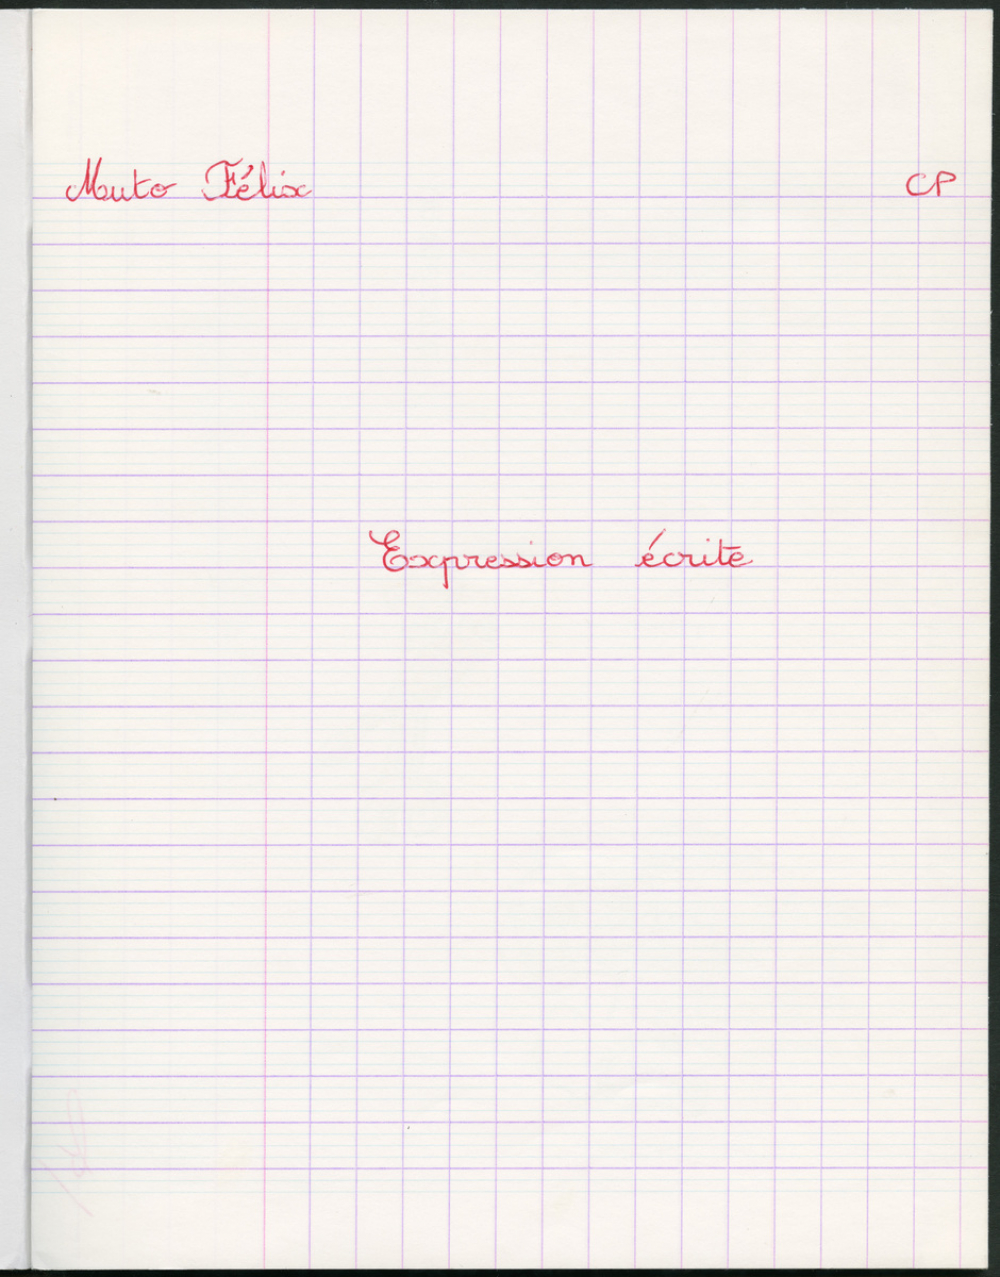 Muto Félix CP
Expression écrite